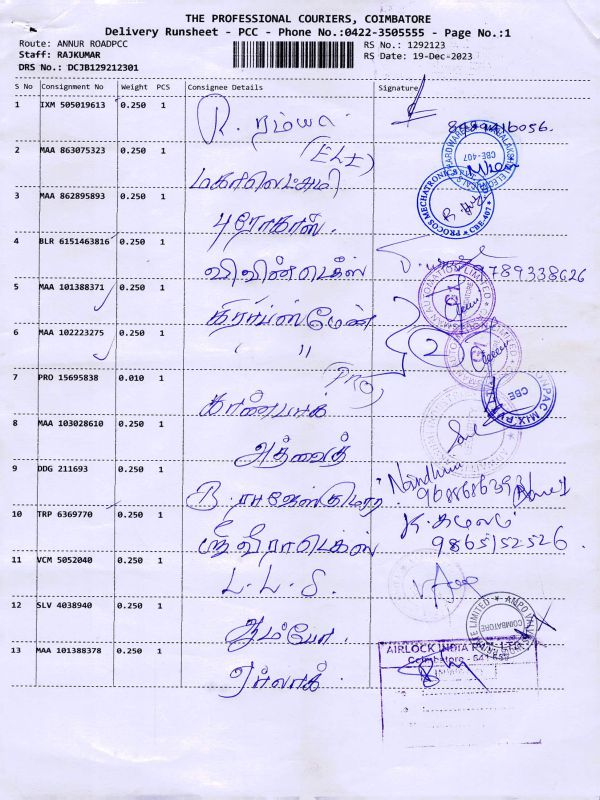 THE PROFESSIONAL COURIERS, COIMBATORE
Delivery Runsheet - PCC - Phone No.:0422-3505555 - Page No.:1
Route: ANNUR ROADPCC
RS No.: 1292123
Staff: RAJKUMAR
RS Date: 19-Dec-2023
DRS No.: DCJB129212301
S No Consignment No Weight PCS Consignee Details Signature
1 IXM 505019613 0.250 1 R. ரம்யா
2 MAA 863075323 0.250 1 (ELE) மகாலெட்சுமி
3 MAA 862895893 0.250 1 புரோகாஸ்.
4 BLR 6151463816 0.250 1 9789338626
5 MAA 101388371 0.250 1
6 MAA 102223275 0.250 1 " " 2
7 PRO 15695838 0.010 1 (PRO)
8 MAA 103028610 0.250 1 அத்வைத்
9 DDG 211693 0.250 1 B. Nandhini
10 TRP 6369770 0.250 1 ஸ்ரீ வீராடெக்ஸ் K. கமலம் 9865152526.
11 VCM 5052040 0.250 1 L. L. S.
12 SLV 4038940 0.250 1 ஆம்போ. COIMBATORE
13 MAA 101388378 0.250 1 ஏர்லாக். AIRLOCK INDIA PVT. LTD.
Coimbatore - 641
PROCOS MECHATRONICS
CBE-407
CBE